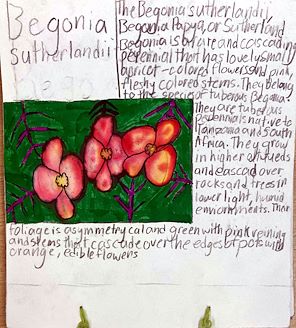 Begonia
Sutherlandii
The Begonia sutherlandii,
Begonia Papaya, or Sutherland
Begonia is a rare and cascading
perennial that has lovely small
apricot-colored flowers and pink,
fleshy colored stems. They belong
to the species of tuberous Begonia.
They are tuberous
perennials native to
Tanzania and south
Africa. They grow
in higher altitudes
and cascad over
rocks and trees in
lower light, humid
enviornments. Their
foliage is asymmetrical and green with pink veining
and stems that cascade over the edges of pots with
orange, edible flowers